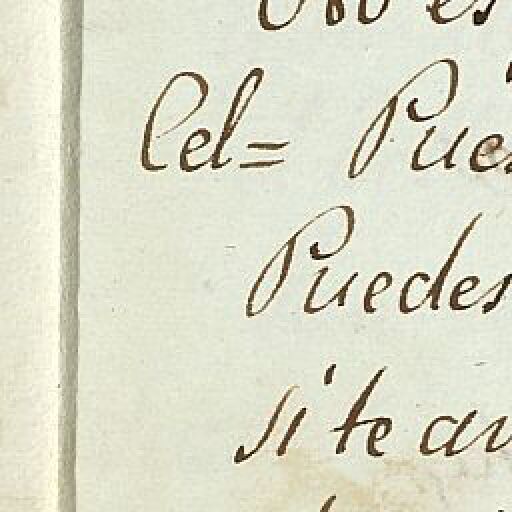 Cel= Pues
Puedes
si te av